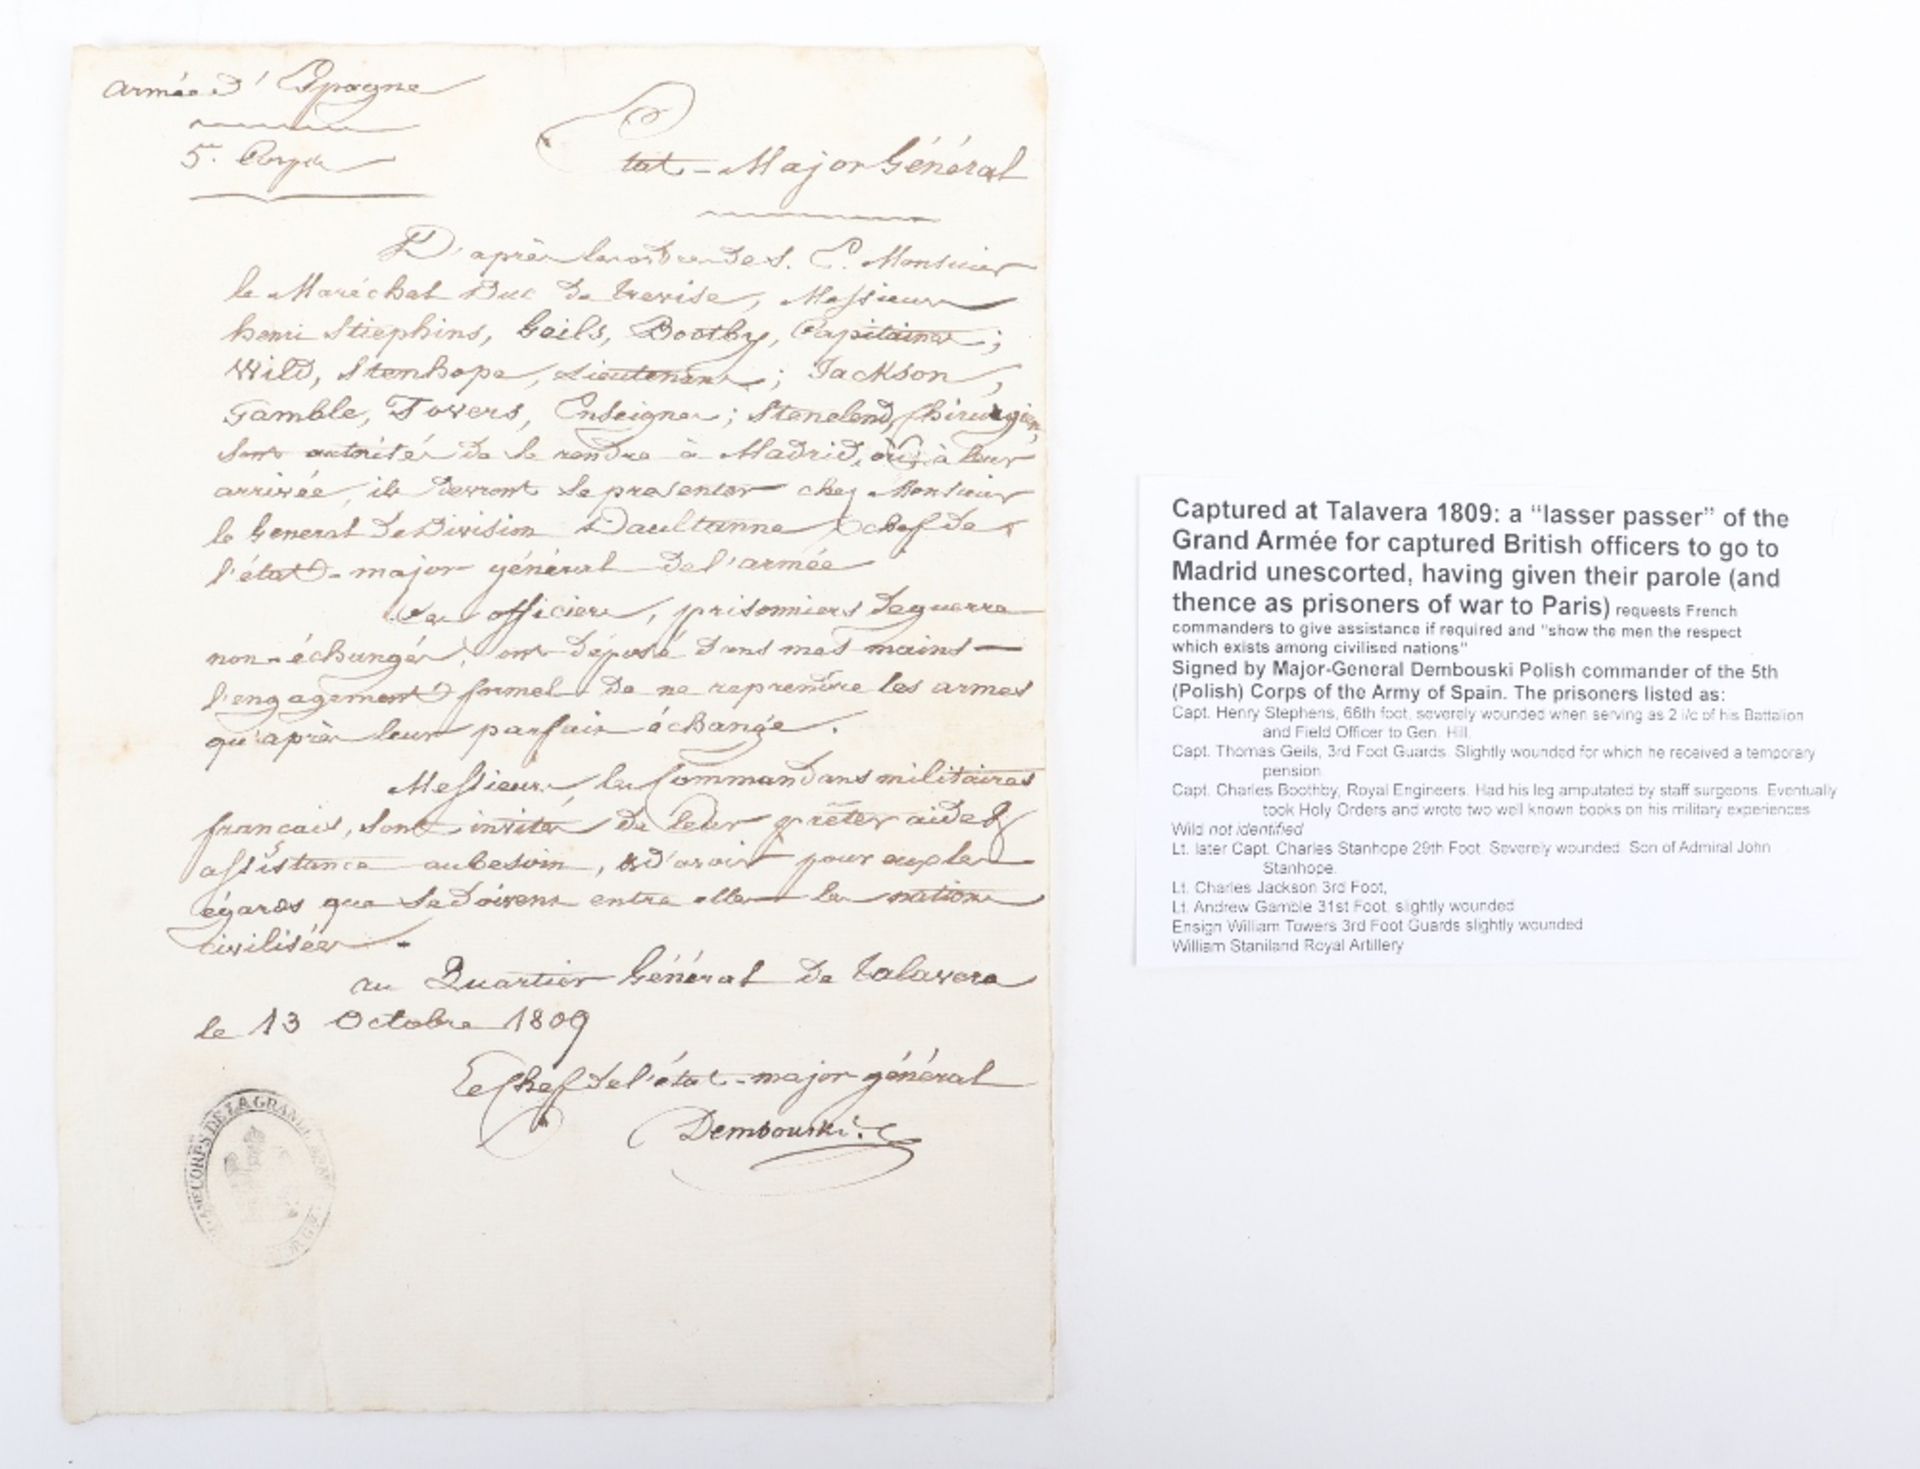 Armée d'Espagne
5e. Corps
Etat-Major Général
D'après les ordres de S. E. Monsieur
le Maréchal Duc de Trevise, Messieurs
henri Stiephins, Geils, Bootby, Capitaines;
Wild, Stenhope, Lieutenans; Jackson,
Gamble, Towers, Enseignes; Stenelend, Chirurgien,
sont autorisés de se rendre à Madrid, où, à leur
arrivée, ils devront se presenter chez Monsieur
le General de Division Daultanne, Chef de
l'état-major général de l'armée
Ces officiers, prisonniers de guerre
non-échangés, ont déposé dans mes mains
l'engagement formel de ne reprendre les armes
qu'après leur parfait échange.
Messieurs les Commandans militaires
francais, sont invités de leur prêter aide &
assistance au besoin, & d'avoir pour eux les
égards que se doivent entre elles les nations
civilisées.
au Quartier Général de Talavera
le 13 Octobre 1809
Le Chef de l'état-major général
Dembouski
CORPS DE LA GRANDE
Captured at Talavera 1809: a “lasser passer” of the
Grand Armée for captured British officers to go to
Madrid unescorted, having given their parole (and
thence as prisoners of war to Paris) requests French
commanders to give assistance if required and “show the men the respect
which exists among civilised nations”
Signed by Major-General Dembouski Polish commander of the 5th
(Polish) Corps of the Army of Spain. The prisoners listed as:
Capt. Henry Stephens, 66th foot, severely wounded when serving as 2 i/c of his Battalion
and Field Officer to Gen. Hill.
Capt. Thomas Geils, 3rd Foot Guards. Slightly wounded for which he received a temporary
pension.
Capt. Charles Boothby, Royal Engineers. Had his leg amputated by staff surgeons. Eventually
took Holy Orders and wrote two well known books on his military experiences
Wild not identified
Lt. later Capt. Charles Stanhope 29th Foot. Severely wounded. Son of Admiral John
Stanhope.
Lt. Charles Jackson 3rd Foot,
Lt. Andrew Gamble 31st Foot, slightly wounded
Ensign William Towers 3rd Foot Guards slightly wounded
William Staniland Royal Artillery